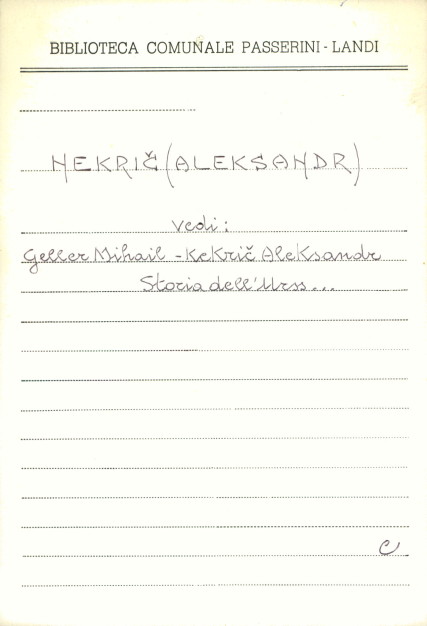 BIBLIOTECA COMUNALE PASSERINI - LANDI
NEKRIČ (ALEKSANDR)
vedi:
Geller Mihail - KeKrič AleKsandr
Storia dell'Urss...
C